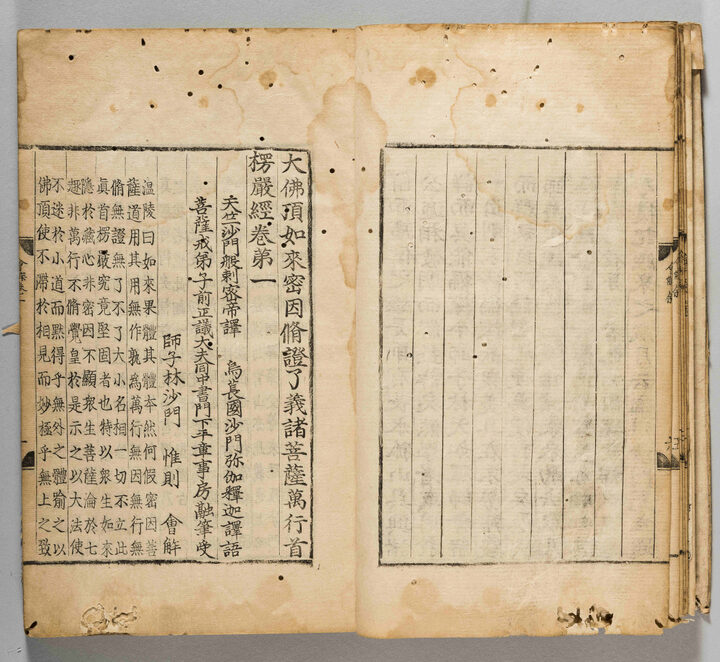 大佛頂如來密因脩證了義諸菩薩萬行首
楞嚴經卷第一
天竺沙門般剌密帝譯 烏萇國沙門弥伽釋迦譯語
菩薩戒弟子前正議大夫同中書門下平章事房融筆受
師子林沙門 惟則 會解
溫陵曰如來果體其體本然何假密因菩
薩道用其用無作孰為萬行無因無行無
脩無證無了不了大小名相一切不立此
眞首楞嚴究竟堅固者也特以衆生如來
隱於藏心非密因不顯衆生菩薩淪於七
趣非萬行不脩覺皇於是示之以大法使
不迷於小道而黙得乎無外之體踰之以
佛頂使不滯於相見而妙極乎無上之致